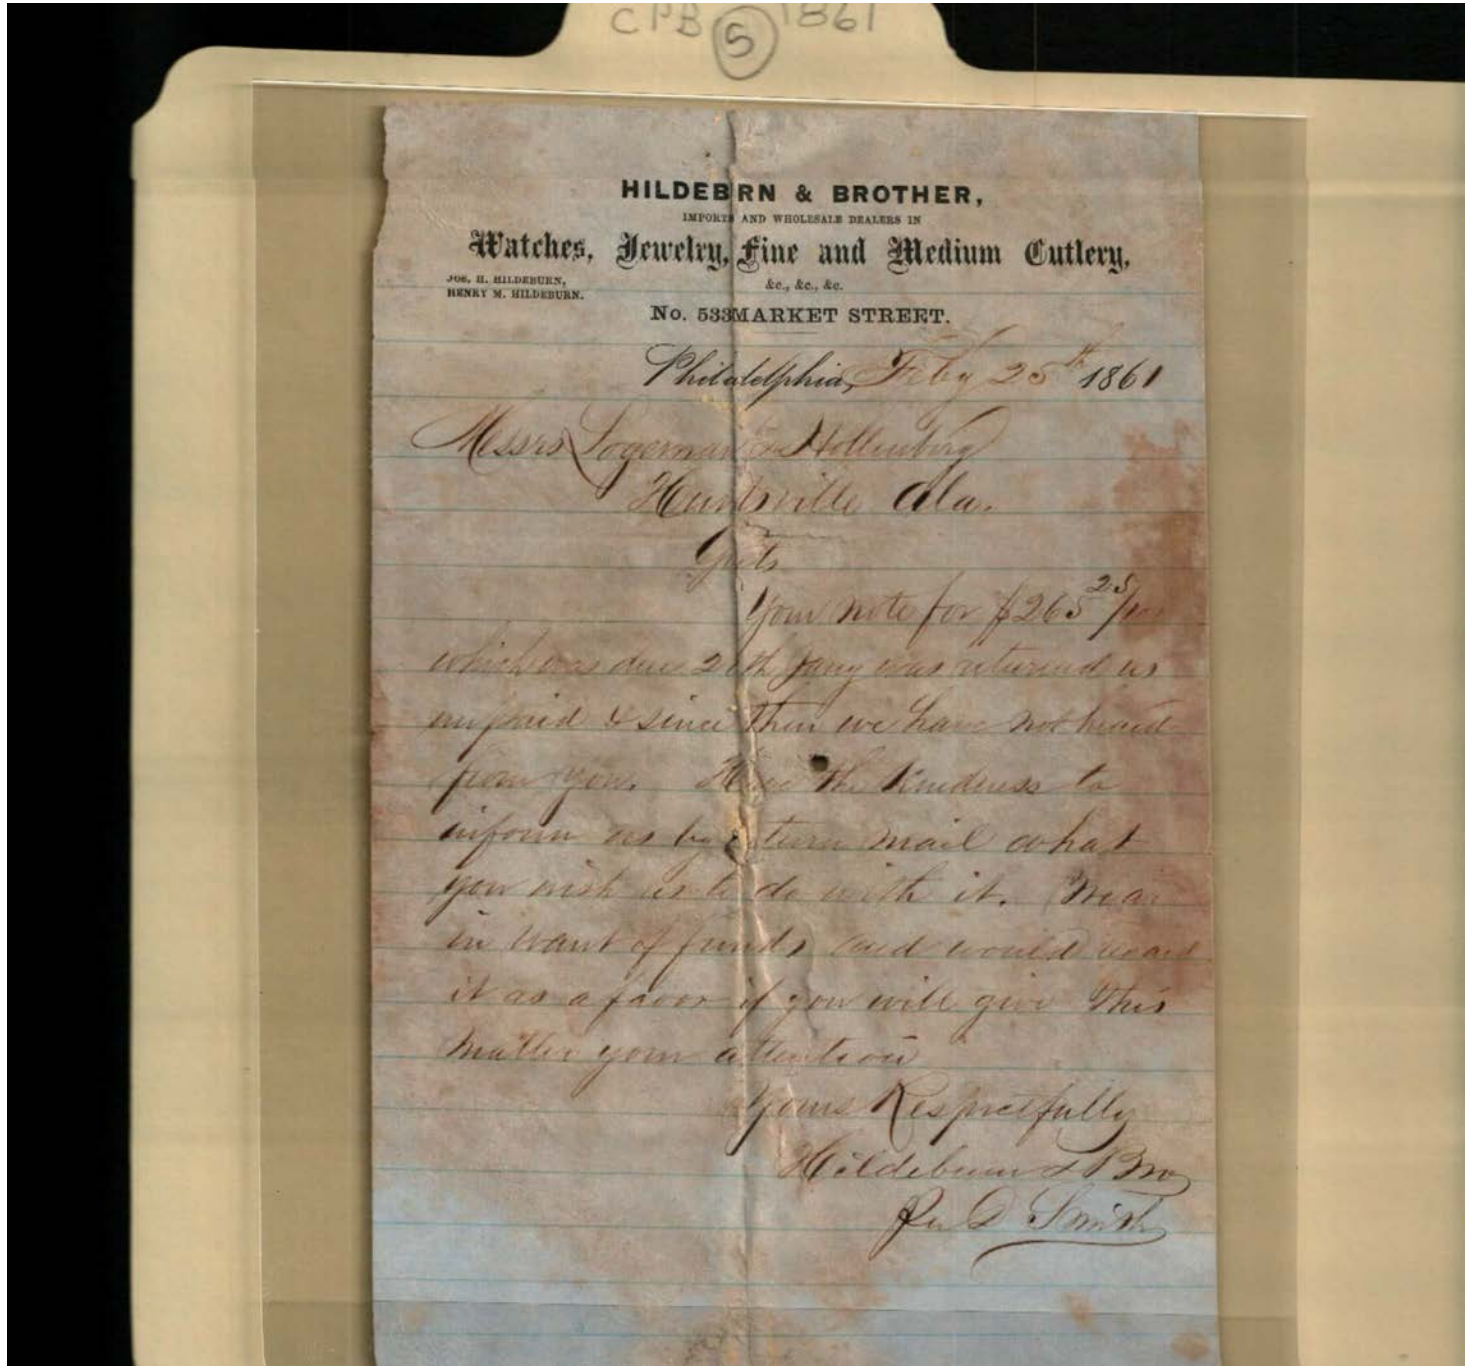 CPB 5 1861
HILDEBRN & BROTHER,
IMPORTS AND WHOLESALE DEALERS IN
Watches, Jewelry, Fine and Medium Cutlery,
JOS. H. HILDEBURN,
HENRY M. HILDEBURN.
&c., &c., &c.
No. 533 MARKET STREET.
Philadelphia, Feby 25th 1861
Messrs Logeman & Hollenberg
Huntsville Ala.
Gents
Your note for $265 25/100
which was due Jany was returned us
unpaid & since then we have not heard
from you. Have the kindness to
inform us by return mail what
you wish us to do with it. We are
in want of funds and would
it as a favor if you will give this
matter your attention
Yours Respectfully
Hildeburn & Bro
Per D Smith